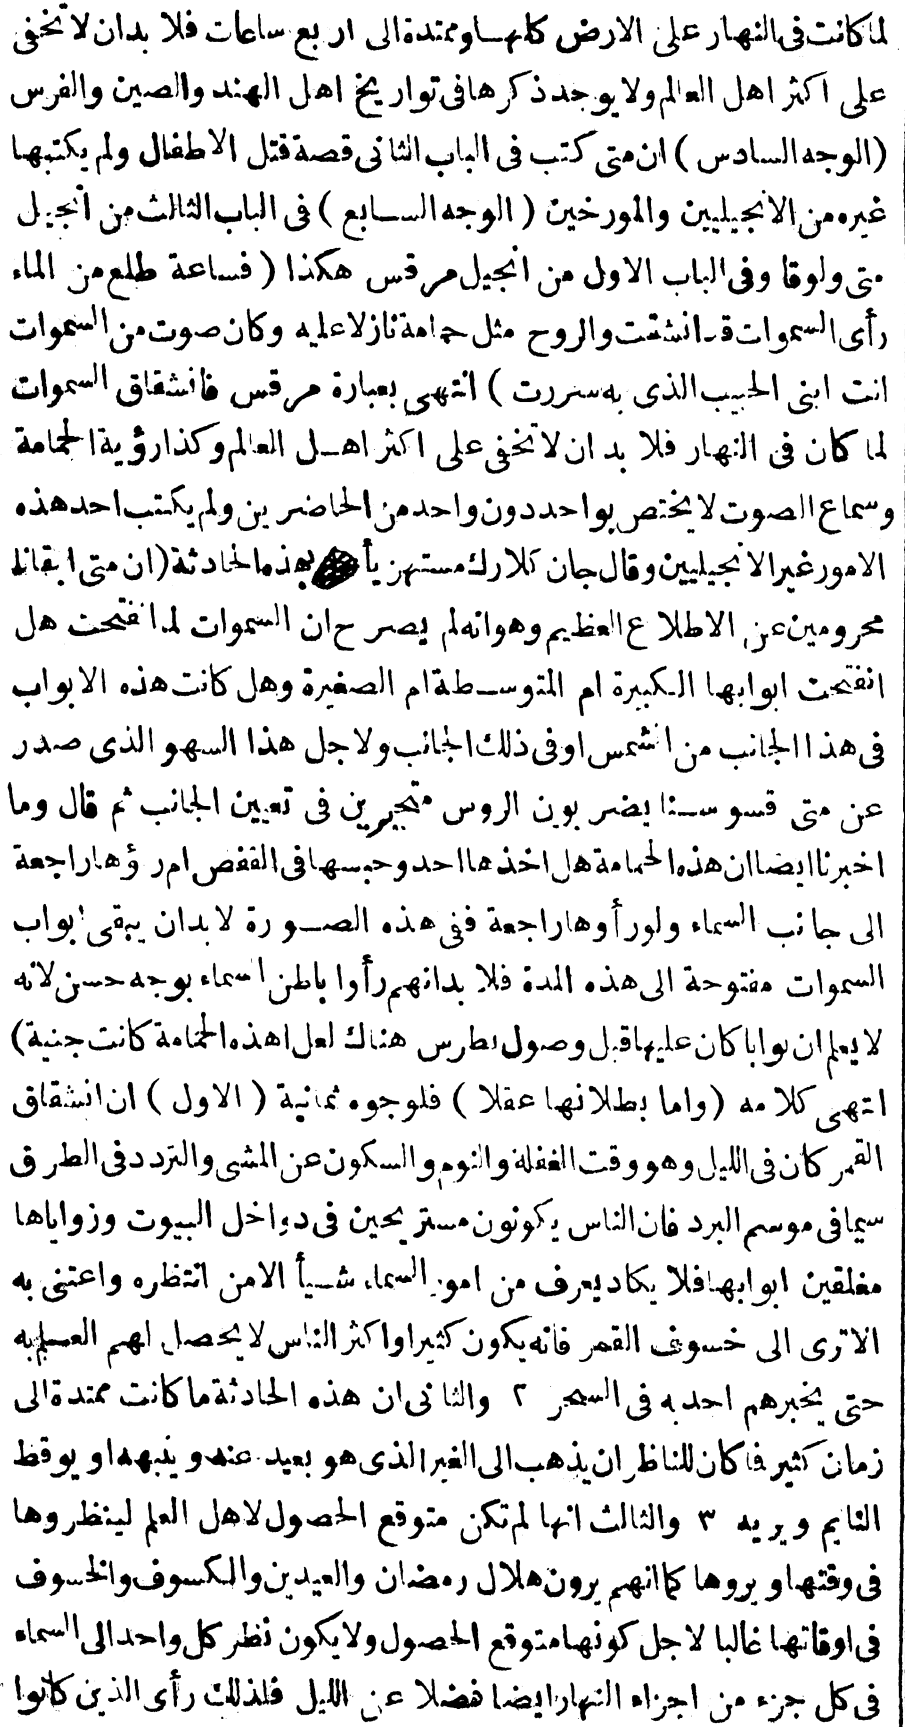 لما كانت فى النهار على الارض كلها وممتدة الى اربع ساعات فلا بد ان لا تخفى
على اكثر اهل العالم ولا يوجد ذكرها فى تواريخ اهل الهند والصين والفرس
(الوجه السادس) ان متى كتب فى الباب الثانى قصة قتل الاطفال ولم يكتبها
غيره من الانجيليين والمورخين (الوجه السابع) فى الباب الثالث من انجيل
متى ولوقا وفى الباب الاول من انجيل مرقس هكذا (فساعة طلع من الماء
رأى السموات قد انشقت والروح مثل حمامة نازلا عليه وكان صوت من السموات
انت ابنى الحبيب الذى به سررت) انتهى بعبارة مرقس فانشقاق السموات
لما كان فى النهار فلا بد ان لا تخفى على اكثر اهل العالم وكذا رؤية الحمامة
وسماع الصوت لا يختص بواحد دون واحد من الحاضرين ولم يكتب احد هذه
الامور غير الانجيليين وقال جان كلارك مستهزيأ بهذه الحادثة (ان متى ابقانا
محرومين عن الاطلاع العظيم وهو انه لم يصرح ان السموات لما انفتحت هل
انفتحت ابوابها الكبيرة ام المتوسطة ام الصغيرة وهل كانت هذه الابواب
فى هذا الجانب من الشمس او فى ذلك الجانب ولاجل هذا السهو الذى صدر
عن متى قسوسنا يضربون الروس متحيرين فى تعيين الجانب ثم قال وما
اخبرنا ايضا ان هذه الحمامة هل اخذها احد وحبسها فى القفص ام رؤها راجعة
الى جانب السماء ولو رأوها راجعة ففى هذه الصورة لا بد ان يبقى ابواب
السموات مفتوحة الى هذه المدة فلا بد انهم رأوا باطن السماء بوجه حسن لانه
لا يعلم ان بوابا كان عليها قبل وصول بطرس هناك لعل هذه الحمامة كانت جنية)
انتهى كلامه (واما بطلانها عقلا) فلوجوه ثمانية (الاول) ان انشقاق
القمر كان فى الليل وهو وقت الغفلة والنوم والسكون عن المشى والتردد فى الطرق
سيما فى موسم البرد فان الناس يكونون مستريحين فى دواخل البيوت وزواياها
مغلقين ابوابها فلا يكاد يعرف من امور السماء شيأ الا من انتظره واعتنى به
الا ترى الى خسوف القمر فانه يكون كثيرا واكثر الناس لا يحصل لهم العلم به
حتى يخبرهم احد به فى السحر ٢ والثانى ان هذه الحادثة ما كانت ممتدة الى
زمان كثير فما كان للناظر ان يذهب الى الغير الذى هو بعيد عنه وينبهه او يوقظ
النايم ويريه ٣ والثالث انها لم تكن متوقع الحصول لاهل العلم لينظروها
فى وقتها ويروها كما انهم يرون هلال رمضان والعيدين والكسوف والخسوف
فى اوقاتها غالبا لاجل كونها متوقع الحصول ولا يكون نظر كل واحد الى السماء
فى كل جزء من اجزاء النهار ايضا فضلا عن الليل فلذلك رأى الذين كانوا